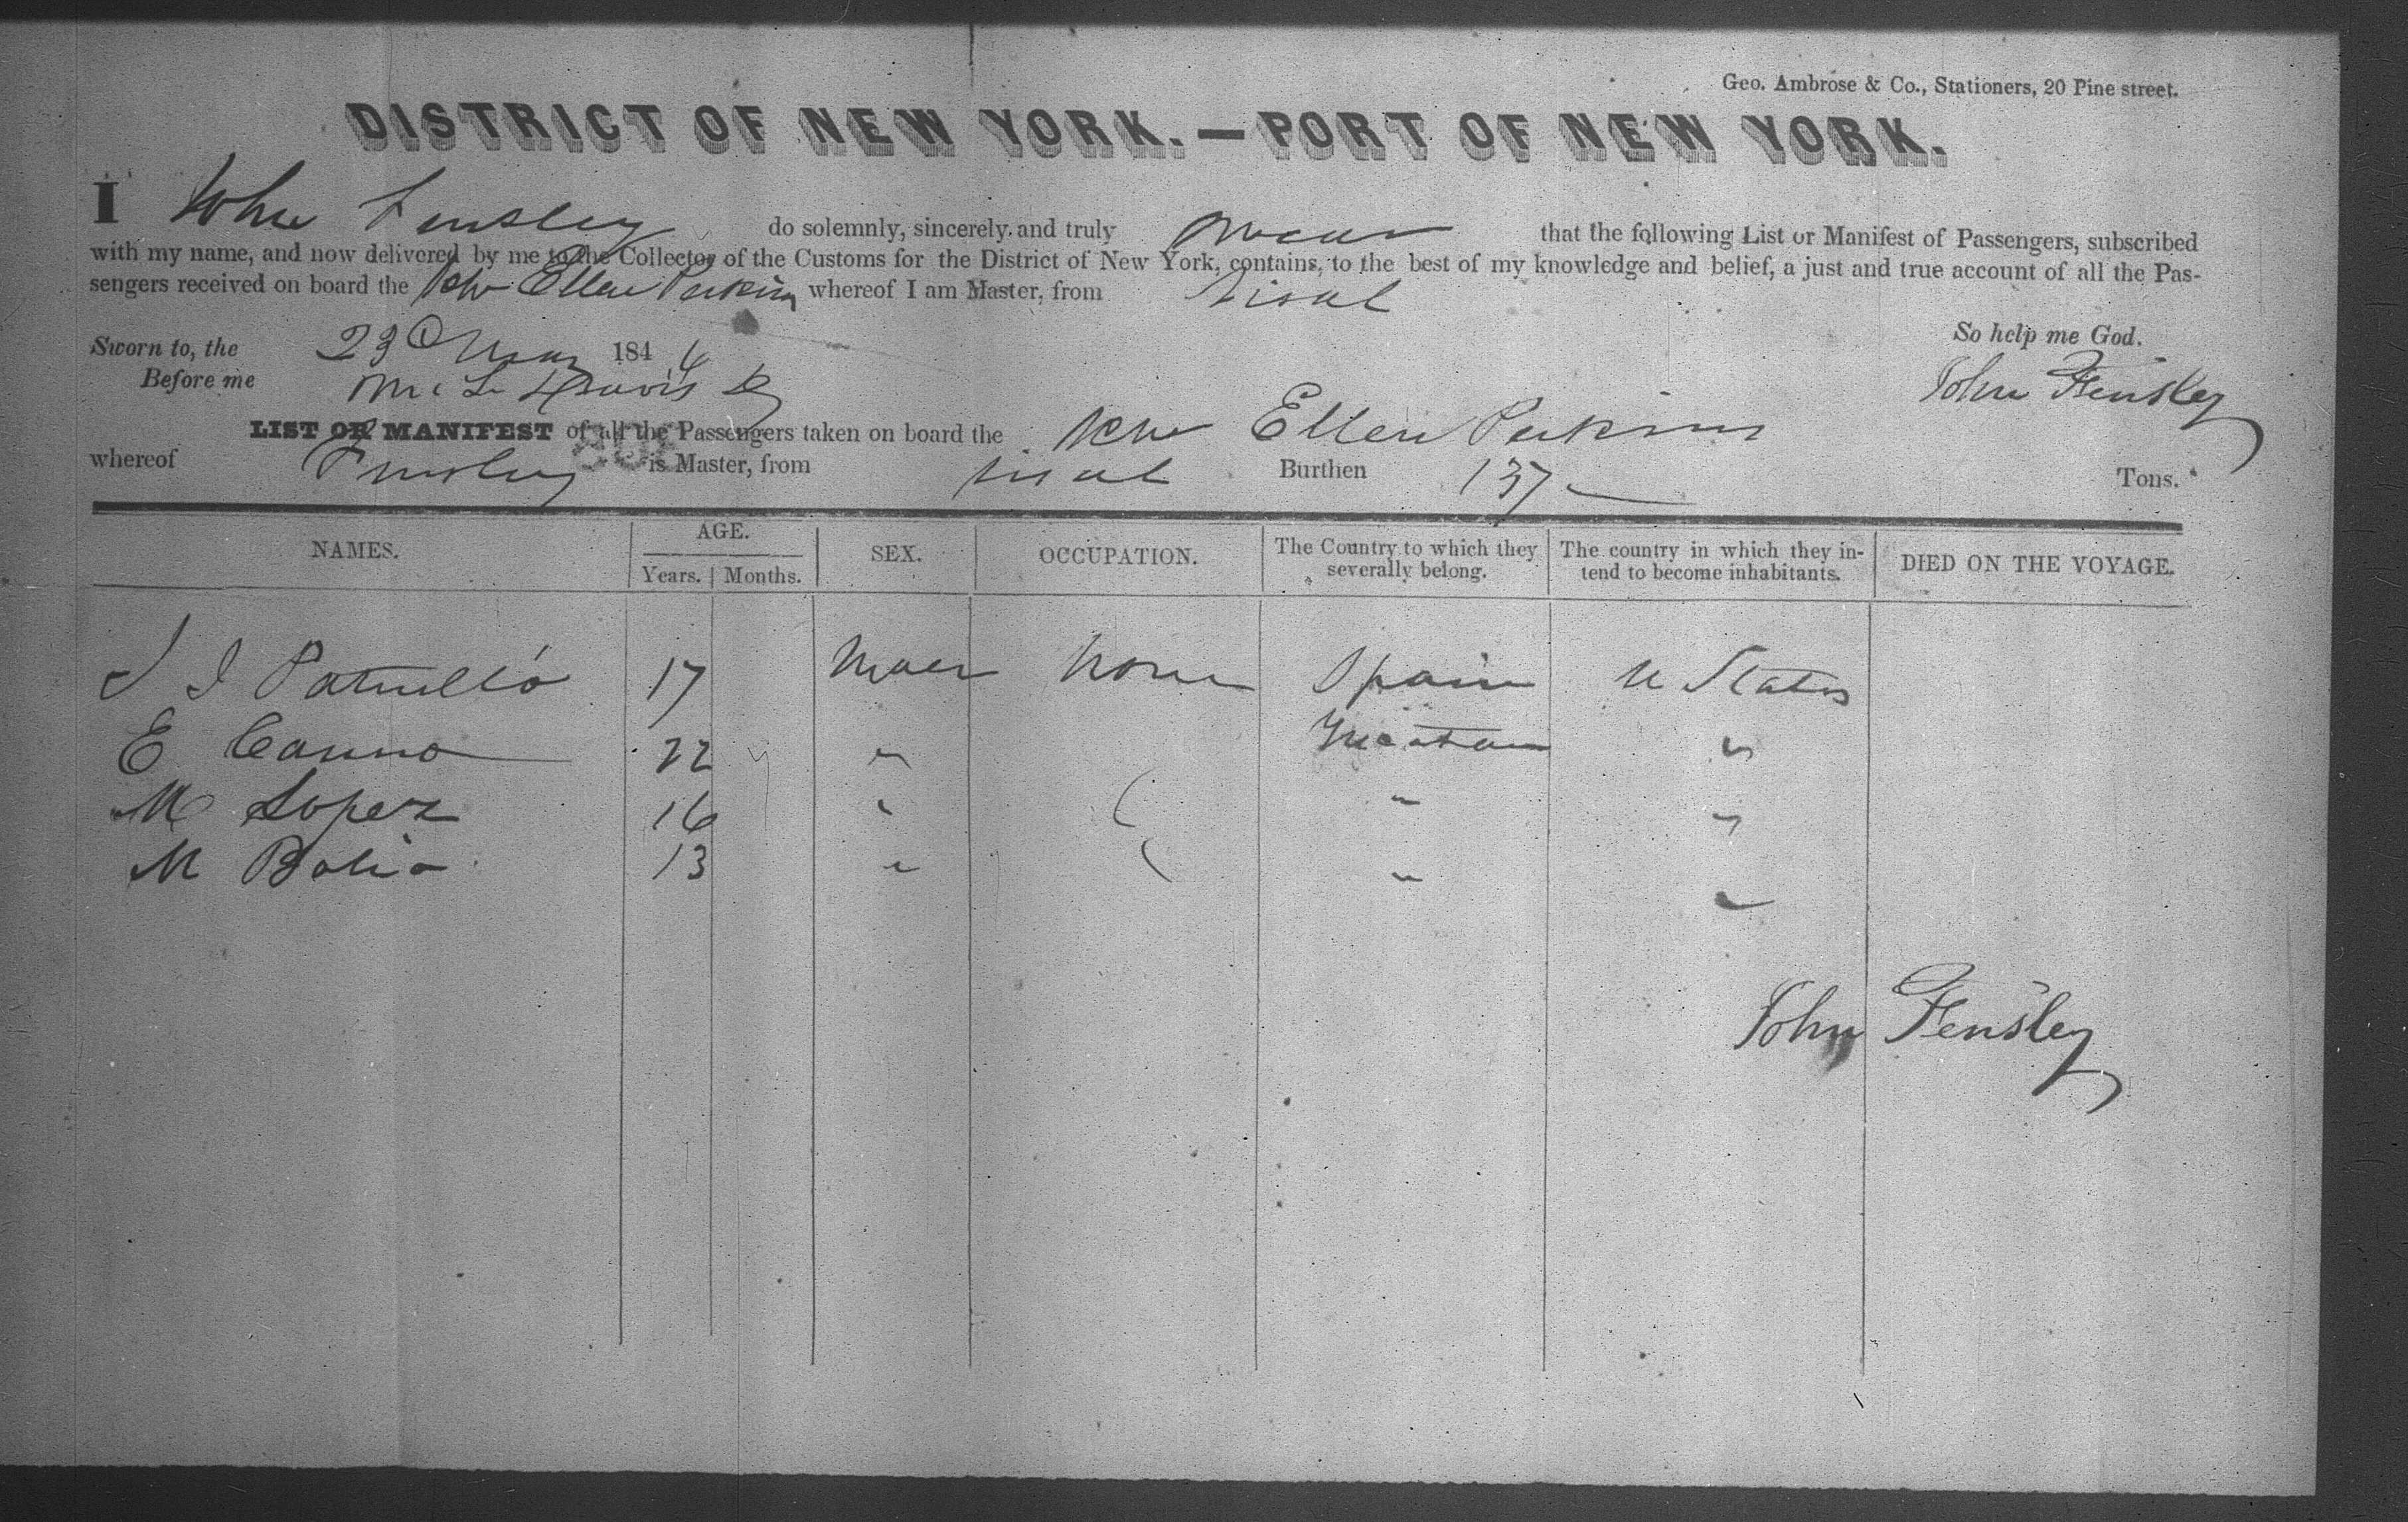 Geo. Ambrose & Co., Stationers, 20 Pine street.
DISTRICT OF NEW YORK.—PORT OF NEW YORK.
I John Fensley do solemnly, sincerely and truly swear that the following List or Manifest of Passengers, subscribed
with my name, and now delivered by me to the Collector of the Customs for the District of New York, contains, to the best of my knowledge and belief, a just and true account of all the Pas-
sengers received on board the Schr Ellen Perkins whereof I am Master, from Sisal
So help me God.
Sworn to, the 23 1846
Before me Davis John Fensley
LIST OR MANIFEST of all the Passengers taken on board the Schr Ellen Perkins
whereof Fensley is Master, from Sisal Burthen 137 Tons.
NAMES. AGE. SEX. OCCUPATION. The Country to which they severally belong. The country in which they in-tend to become inhabitants. DIED ON THE VOYAGE.
Years. Months.
J J Patrulló 17 Male None Spain U States
E Canno 22 " Yucatan "
M Lopez 16 " " "
M Bolio 13 " " "
John Fensley